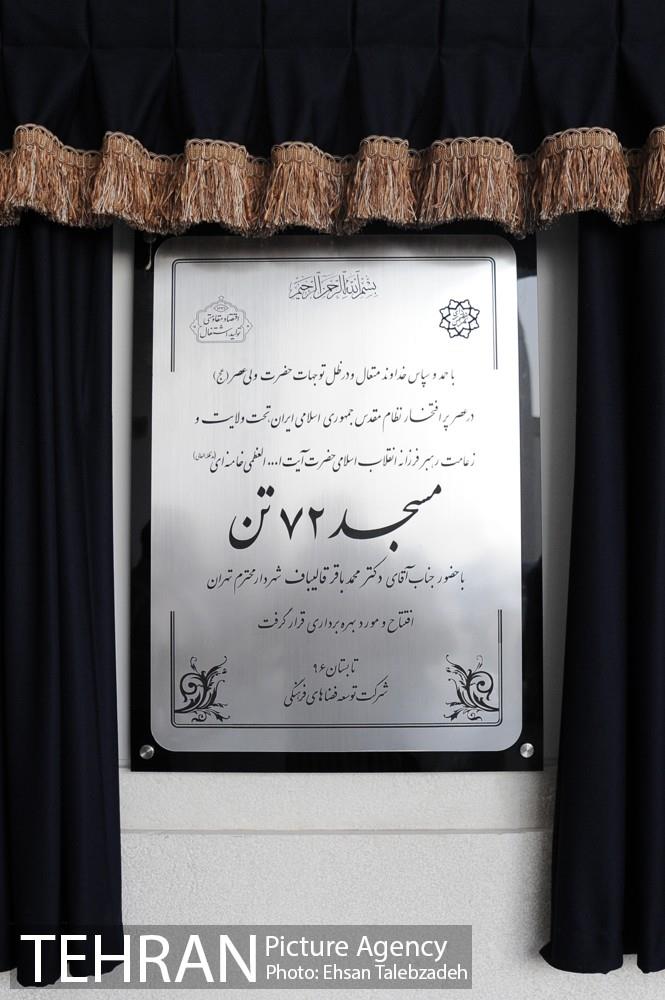 بسم الله الرحمن الرحیم
اقتصاد مقاومتی
تولید، اشتغال
با حمد و سپاس خداوند متعال و در ظل توجهات حضرت ولی عصر (عج)
در عصر پر افتخار نظام مقدس جمهوری اسلامی ایران، تحت ولایت و
زعامت رهبر فرزانه انقلاب اسلامی حضرت آیت ا... العظمی خامنه ای (مدظله العالی)
مسجد ۷۲ تن
با حضور جناب آقای دکتر محمد باقر قالیباف شهردار محترم تهران
افتتاح و مورد بهره برداری قرار گرفت
تابستان ۹۶
شرکت توسعه فضاهای فرهنگی
TEHRAN Picture Agency
Photo: Ehsan Talebzadeh